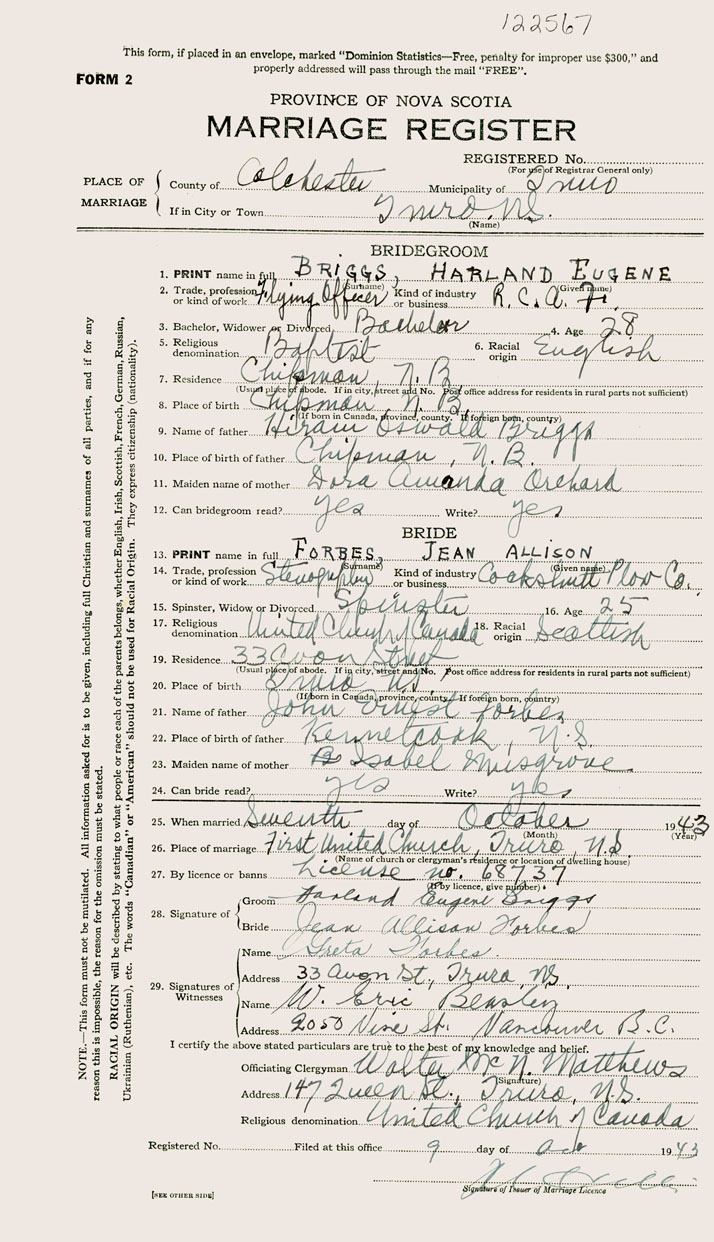 122567
This form, if placed in an envelope, marked "Dominion Statistics—Free, penalty for improper use $300," and
properly addressed will pass through the mail "FREE".
FORM 2
PROVINCE OF NOVA SCOTIA
MARRIAGE REGISTER
REGISTERED No.
(For use of Registrar General only)
PLACE OF MARRIAGE
County of Colchester Municipality of Truro
If in City or Town Truro, N.S.
(Name)
BRIDEGROOM
1. PRINT name in full BRIGGS, HARLAND EUGENE
(Surname) (Given name)
2. Trade, profession or kind of work Flying Officer Kind of industry or business R.C.A.F.
3. Bachelor, Widower or Divorced Bachelor 4. Age 28
5. Religious denomination Baptist 6. Racial origin English
7. Residence Chipman, N.B.
(Usual place of abode. If in city, street and No. Post office address for residents in rural parts not sufficient)
8. Place of birth Chipman N.B.
(If born in Canada, province, county. If foreign born, country)
9. Name of father Hiram Oswald Briggs
10. Place of birth of father Chipman, N.B.
11. Maiden name of mother Dora Amanda Orchard
12. Can bridegroom read? yes Write? yes
BRIDE
13. PRINT name in full FORBES, JEAN ALLISON
(Surname) (Given name)
14. Trade, profession or kind of work Stenographer Kind of industry or business Cockshutt Plow Co.
15. Spinster, Widow or Divorced Spinster 16. Age 25
17. Religious denomination United Church of Canada 18. Racial origin Scottish
19. Residence 33 Avon Street
(Usual place of abode. If in city, street and No. Post office address for residents in rural parts not sufficient)
20. Place of birth Truro N.S.
(If born in Canada, province, county. If foreign born, country)
21. Name of father John Ernest Forbes
22. Place of birth of father Kennetcook, N.S.
23. Maiden name of mother Isabel Musgrove
24. Can bride read? yes Write? yes
25. When married Seventh day of October 1943
(Month) (Year)
26. Place of marriage First United Church, Truro, N.S.
(Name of church or clergyman's residence or location of dwelling house)
27. By licence or banns License no. 68737
(If by licence, give number)
28. Signature of
Groom Harland Eugene Briggs
Bride Jean Allison Forbes
29. Signatures of Witnesses
Name Greta Forbes
Address 33 Avon St., Truro, N.S.
Name W. Eric
Address 2050 Vine St. Vancouver B.C.
I certify the above stated particulars are true to the best of my knowledge and belief.
Officiating Clergyman Walter McN. Matthews
(Signature)
Address 147 Queen St., Truro, N.S.
Religious denomination United Church of Canada
Registered No. Filed at this office 9 day of Oct 1943
Signature of Issuer of Marriage Licence
[SEE OTHER SIDE]
NOTE.—This form must not be mutilated. All information asked for is to be given, including full Christian and surnames of all parties, and if for any
reason this is impossible, the reason for the omission must be stated.
RACIAL ORIGIN will be described by stating to what people or race each of the parents belongs, whether English, Irish, Scottish, French, German, Russian,
Ukrainian (Ruthenian), etc. The words "Canadian" or "American" should not be used for Racial Origin. They express citizenship (nationality).